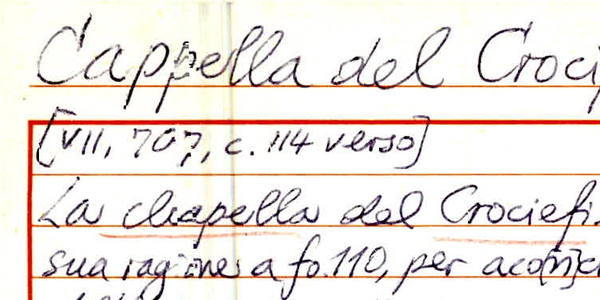 Cappella del Croci
[VII, 707, c. 114 verso]
La chapella del Crociefi
sua ragione a fo. 110, per aco[n]c